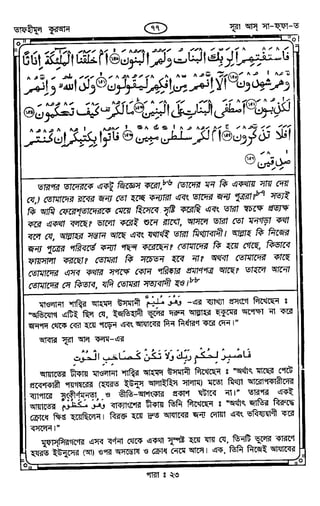 তাফহীমুল কুরআন
৭৭
সূরা আস্ সা-ফ্ফা-ত
فَاسْتَفْتِهِمْ أَلِرَبِّكَ الْبَنَاتُ وَلَهُمُ الْبَنُونَ ﴿١٤٩﴾ أَمْ خَلَقْنَا الْمَلٰئِكَةَ إِنَاثًا
وَّهُمْ شٰهِدُونَ ﴿١٥٠﴾ أَلَا إِنَّهُمْ مِّنْ إِفْكِهِمْ لَيَقُولُونَ ﴿١٥١﴾ وَلَدَ اللّٰهُ وَإِنَّهُمْ
لَكٰذِبُونَ ﴿١٥٢﴾ أَصْطَفَى الْبَنَاتِ عَلَى الْبَنِينَ ﴿١٥٣﴾ مَا لَكُمْ كَيْفَ تَحْكُمُونَ ﴿١٥٤﴾
أَفَلَا تَذَكَّرُونَ ﴿١٥٥﴾ أَمْ لَكُمْ سُلْطٰنٌ مُّبِينٌ ﴿١٥٦﴾ فَأْتُوا بِكِتٰبِكُمْ إِنْ كُنْتُمْ
صٰدِقِينَ ﴿١٥٧﴾
তারপর তাদেরকে একটু জিজ্ঞেস করো,৮৬ (তাদের মন কি একথায় সায় দেয়
যে,) তোমাদের রবের জন্য তো হচ্ছে কন্যারা এবং তাদের জন্য পুত্ররা?৮৭ সত্যই
কি আমি ফেরেশ্‌তাদেরকে মেয়ে হিসেবে সৃষ্টি করেছি এবং তারা স্বচক্ষে প্রত্যক্ষ
করে একথা বলছে? ভালো করেই শুনে রাখো, আসলে তারা তো মনগড়া কথা
বলে যে, আল্লাহর সন্তান আছে এবং যথার্থই তারা মিথ্যাবাদী। আল্লাহ কি নিজের
জন্য পুত্রের পরিবর্তে কন্যা পছন্দ করেছেন? তোমাদের কি হয়ে গেছে, কিভাবে
ফায়সালা করছো? তোমরা কি সচেতন হবে না? অথবা তোমাদের কাছে
তোমাদের এসব কথার সপক্ষে কোন পরিষ্কার প্রমাণপত্র আছে? তাহলে আনো
তোমাদের সে কিতাব, যদি তোমরা সত্যবাদী হও।৮৮
মাওলানা শাব্বির আহমদ উসমানী وَهُوَ مُلِيْمٌ -এর ব্যাখ্যা প্রসংগে লিখেছেন ঃ
"অভিযোগ এটিই ছিল যে, ইজতিহাদী ভুলের দরুন আল্লাহর হুকুমের অপেক্ষা না করে
জনপদ থেকে বের হয়ে পড়েন এবং আযাবের দিন নির্ধারণ করে দেন।"
আবার সূরা আল কলম-এর
فَاصْبِرْ لِحُكْمِ رَبِّكَ وَلَا تَكُنْ كَصَاحِبِ الْحُوْتِ
আয়াতের টীকায় মাওলানা শাব্বির আহমদ উসমানী লিখেছেন ঃ "অর্থাৎ মাছের পেটে
প্রবেশকারী পয়গম্বরের (হযরত ইউনুস আলাইহিস সালাম) মতো মিথ্যা আরোপকারীদের
ব্যাপারে সংকীর্ণমনতা ও ভীতি-আশংকার প্রকাশ ঘটাবে না।" তারপর একই
আয়াতের وَهُوَ مَكْظُوْمٌ বাক্যাংশের টীকায় তিনি লিখেছেন ঃ "অর্থাৎ জাতির বিরুদ্ধে
ক্রোধে ক্ষিপ্ত হয়েছিলেন। বিরক্ত হয়ে দ্রুত আযাবের জন্য দোয়া এবং ভবিষ্যদ্বাণী করে
বসলেন।"
মুফাসসিরগণের এসব বর্ণনা থেকে একথা সুস্পষ্ট হয়ে যায় যে, তিনটি ভুলের কারণে
হযরত ইউনুসের (আ) ওপর অসন্তোষ ও ক্রোধ নেমে আসে। এক, তিনি নিজেই আযাবের
পারা ঃ ২৩